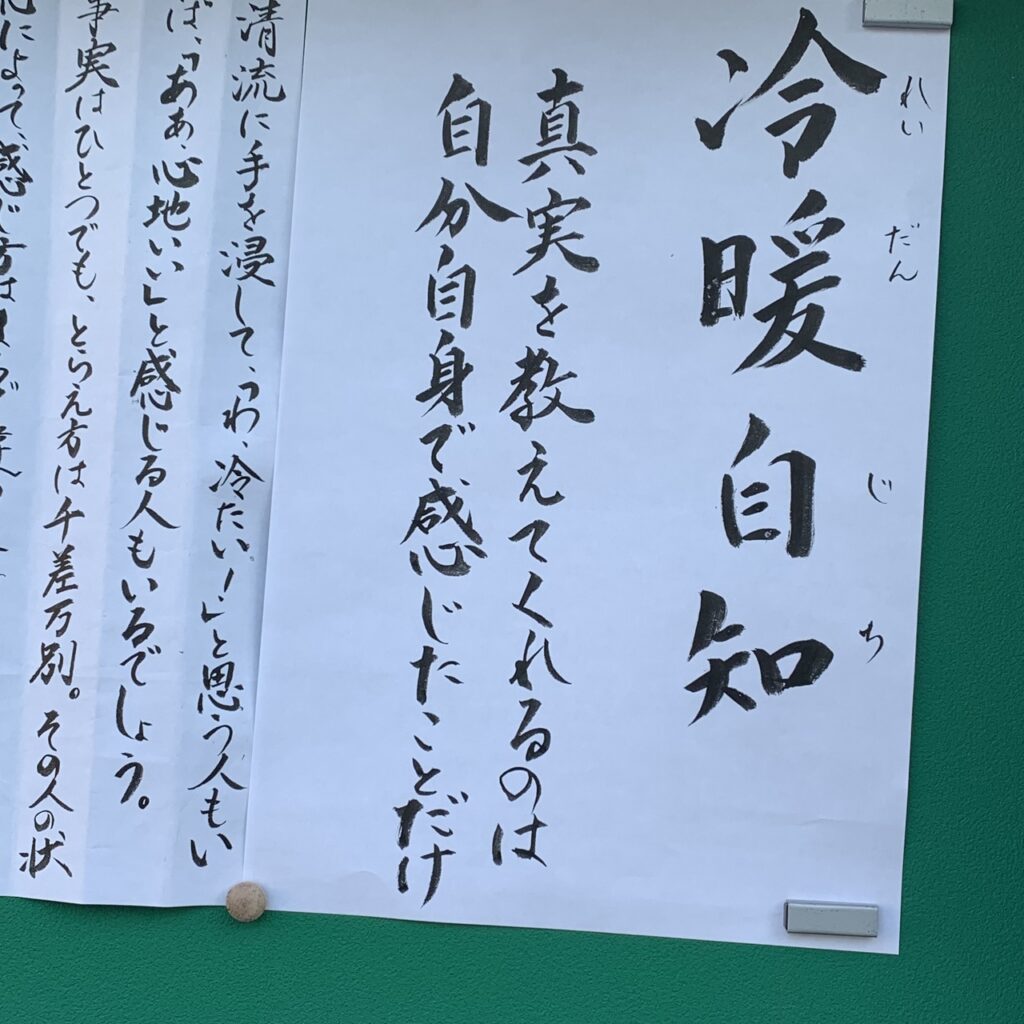 冷暖自知
れいだんじち
真実を教えてくれるのは
自分自身で感じたことだけ
清流に手を浸して、「わ、冷たい！」と思う人もい
ば、「ああ、心地いい」と感じる人もいるでしょう。
事実はひとつでも、とらえ方は千差万別。その人の状
によって、感じ方は